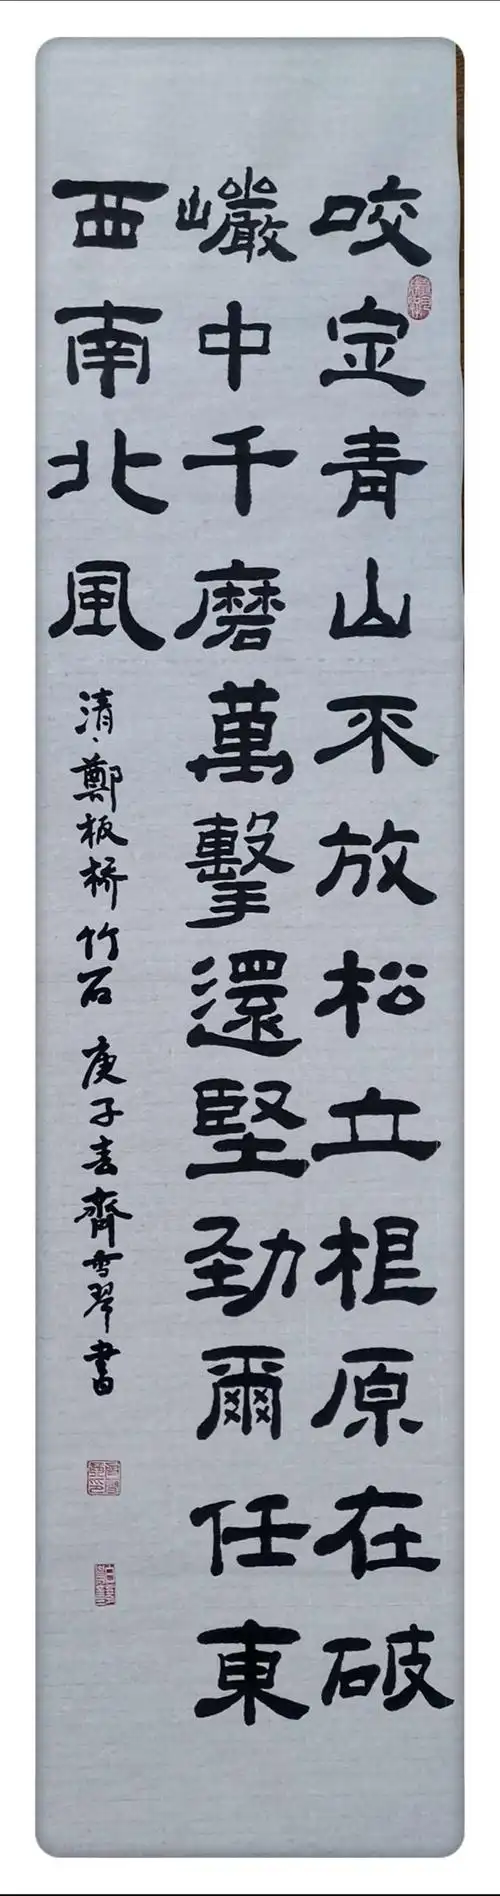 咬定青山不放松立根原在破
巗中千磨萬擊還堅勁爾任東
西南北風
清、鄭板桥竹石 庚子春齊雪琴書